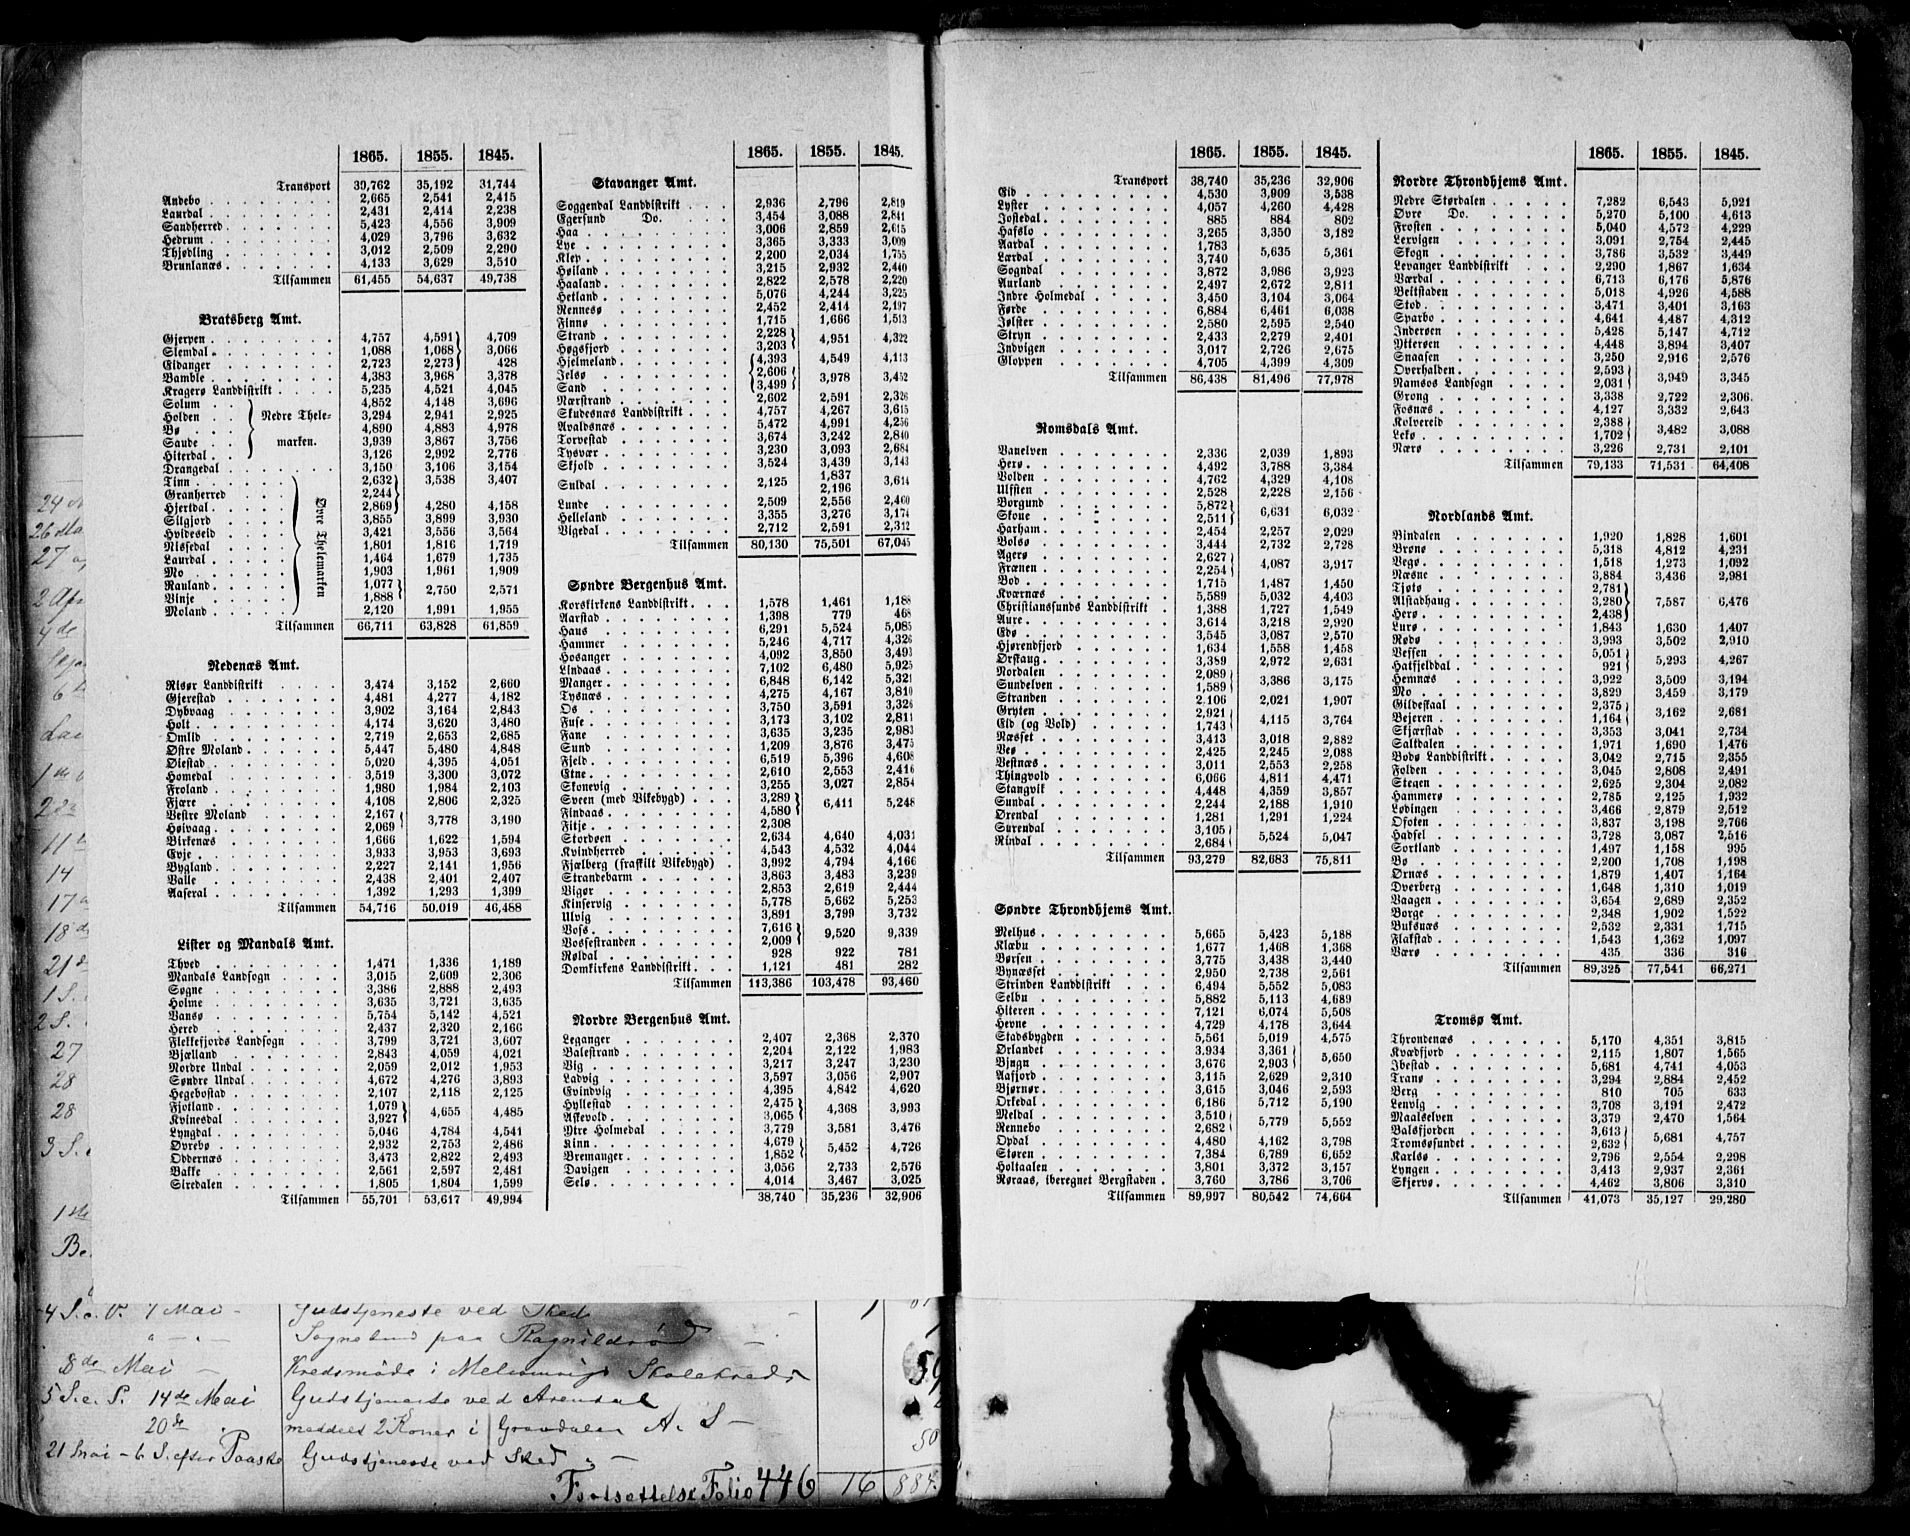 1865. 1855. 1845.
Transport 39,762 35,192 31,744
Andebo 2,665 2,541 2,415
Laurdal 2,431 2,414 2,238
Sandherred 5,423 4,556 3,909
Hedrum 4,029 3,796 3,632
Thjødling 3,012 2,509 2,290
Brunlanæs 4,133 3,629 3,510
Tilsammen 61,455 54,637 49,738
Bratsberg Amt.
Gjerpen 4,757 4,591 4,709
Slemdal 1,088 1,068 3,066
Eidanger 2,723 2,273 428
Bamble 4,383 3,968 3,378
Kragerø Landdistrikt 5,235 4,521 4,045
Solum 4,852 4,148 3,696
Holden Nedre Thele- 3,294 2,941 2,925
Bø 4,890 4,883 4,978
Saude marken. 3,939 3,867 3,756
Hiterdal 3,126 2,992 2,776
Drangedal 3,150 3,106 3,154
Tinn 2,632 3,538 3,407
Granherred 2,244
Hjertdal 2,869 4,280 4,158
Silgjord 3,855 3,899 3,930
Hvideseid 3,421 3,556 3,564
Nissedal 1,801 1,816 1,719
Laurdal 1,464 1,679 1,735
Mo 1,903 1,961 1,909
Rauland 1,077 2,750 2,571
Vinje 1,888
Moland 2,120 1,991 1,955
Øvre Thelemarken
Tilsammen 66,711 63,828 61,859
Nedenæs Amt.
Risør Landdistrikt 3,474 3,152 2,660
Gjerestad 4,481 4,277 4,182
Dybvaag 3,902 3,164 2,843
Holt 4,174 3,620 3,480
Omlid 2,719 2,653 2,685
Østre Moland 5,447 5,480 4,848
Øiestad 5,020 4,395 4,051
Homedal 3,519 3,300 3,072
Froland 1,980 1,984 2,103
Fjære 4,108 2,806 2,325
Vestre Moland 2,167 3,778 3,190
Høivaag 2,069
Birkenæs 1,666 1,622 1,594
Evje 3,933 3,953 3,693
Bygland 2,227 2,141 1,956
Valle 2,438 2,401 2,407
Aaseral 1,392 1,293 1,399
Tilsammen 54,716 50,019 46,488
Lister og Mandals Amt.
Thved 1,471 1,336 1,189
Mandals Landsogn 3,015 2,609 2,306
Søgne 3,386 2,888 2,493
Holme 3,635 3,721 3,635
Vansø 5,754 5,142 4,521
Hered 2,437 2,320 2,166
Flekkefjords Landsogn 3,799 3,721 3,607
Bjælland 2,843 4,059 4,021
Nordre Undal 2,059 2,012 1,953
Søndre Undal 4,672 4,276 3,893
Hegebostad 2,107 2,118 2,125
Fjotland 1,079 4,655 4,485
Kvinesdal 3,927
Lyngdal 5,046 4,784 4,541
Øvrebø 2,932 2,753 2,486
Oddernæs 3,473 2,822 2,493
Bakke 2,561 2,597 2,481
Siredalen 1,805 1,804 1,599
Tilsammen 55,701 53,617 49,994
1865. 1855. 1845.
Stavanger Amt.
Soggendal Landdistrikt 2,936 2,796 2,819
Egersund Do. 3,454 3,088 2,841
Haa 3,006 2,859 2,615
Lye 3,365 3,333 3,009
Klep 2,200 2,034 1,755
Høiland 3,215 2,932 2,440
Haaland 2,822 2,578 2,220
Hetland 5,076 4,244 3,225
Rennesø 2,452 2,414 2,197
Finnø 1,715 1,666 1,513
Strand 2,228 4,951 4,322
Høgsfjord 3,203
Hjelmeland 4,393 4,549 4,113
Jelsø 2,606 3,978 3,452
Sand 3,499
Nærstrand 2,602 2,591 2,326
Skudesnæs Landdistrikt 4,757 4,267 3,615
Avaldsnæs 5,472 4,991 4,256
Torvestad 3,674 3,242 2,840
Tysvær 3,230 3,093 2,684
Skjold 3,524 3,439 3,143
Suldal 2,125 1,837 2,196 3,614
Lunde 2,509 2,556 2,460
Helleland 3,355 3,276 3,174
Vigedal 2,712 2,591 2,312
Tilsammen 80,130 75,501 67,045
Søndre Bergenhus Amt.
Korskirkens Landdistrikt 1,578 1,461 1,188
Aarstad 1,398 779 468
Haus 6,291 5,524 5,085
Hammer 5,246 4,717 4,326
Hosanger 4,092 3,850 3,493
Lindaas 7,102 6,480 5,925
Manger 6,848 6,142 5,321
Tysnæs 4,275 4,167 3,810
Os 3,750 3,591 3,326
Fuse 3,173 3,102 2,811
Fane 3,635 3,235 2,983
Sund 1,209 3,876 3,475
Fjeld 6,519 5,396 4,608
Etne 2,610 2,553 2,416
Skonevig 3,255 3,027 2,854
Sveen (med Vikebygd) 3,289 6,411 5,248
Findaas 4,580
Fitje 2,308
Stordøen 2,634 4,640 4,031
Kvindherred 4,543 4,532 4,044
Fjælberg (fraskilt Vikebygd) 3,992 4,794 4,166
Strandebarm 3,863 3,483 3,239
Vigør 2,853 2,619 2,444
Kinservig 5,778 5,662 5,253
Ulvig 3,891 3,799 3,732
Voss 7,616 9,520 9,339
Vossestranden 2,009
Røldal 928 922 781
Domkirkens Landdistrikt 1,121 481 282
Tilsammen 113,386 103,478 93,460
Nordre Bergenhus Amt.
Leganger 2,407 2,368 2,370
Balestrand 2,204 2,122 1,983
Vig 3,217 3,247 3,230
Ladvig 3,597 3,056 2,907
Evindvig 4,395 4,842 4,620
Hyllestad 2,475 4,368 3,993
Askevold 3,065
Ytre Holmedal 3,779 3,581 3,476
Kinn 4,679 5,452 4,726
Bremanger 1,852
Davigen 3,056 2,733 2,576
Selø 4,014 3,467 3,025
38,740 35,236 32,906
1865. 1855. 1845.
Transport 38,740 35,236 32,906
Eid 4,530 3,909 3,538
Lyster 4,057 4,260 4,428
Jostedal 885 884 802
Hafslo 3,265 3,350 3,182
Aardal 1,783 5,635 5,361
Lærdal 3,740
Sogndal 3,872 3,986 3,923
Aurland 2,497 2,672 2,811
Indre Holmedal 3,450 3,104 3,064
Førde 6,884 6,461 6,038
Jølster 2,580 2,595 2,540
Stryn 2,433 2,279 2,401
Indvigen 3,017 2,726 2,675
Gloppen 4,705 4,399 4,309
Tilsammen 86,438 81,496 77,978
Romsdals Amt.
Vanelven 2,336 2,039 1,893
Herø 4,492 3,788 3,384
Volden 4,762 4,329 4,108
Ulfsten 2,528 2,228 2,156
Borgund 5,872 6,631 6,032
Skoue 2,511
Harham 2,454 2,257 2,029
Bolsø 3,444 2,732 2,728
Agerø 2,627 4,087 3,917
Frænen 2,254
Bod 1,715 1,487 1,450
Kværnæs 5,589 5,032 4,403
Christiansunds Landdistrikt 1,388 1,727 1,549
Aure 3,614 3,218 2,920
Edø 3,545 3,087 2,570
Hjørendfjord 1,634 1,558 1,458
Ørstaug 3,389 2,972 2,631
Nordalen 2,089 3,386 3,175
Sundelven 1,589
Stranden 2,106 2,021 1,907
Gryten 2,921 4,115 3,764
Eid (og Vold) 1,743
Næsset 3,413 3,018 2,882
Veø 2,425 2,245 2,088
Vestnæs 3,011 2,553 2,258
Thingvold 6,066 4,811 4,471
Stangvik 4,448 4,359 3,857
Sundal 2,244 2,188 1,910
Ørendal 1,281 1,291 1,224
Surendal 3,105 5,524 5,047
Rindal 2,684
Tilsammen 93,279 82,683 75,811
Søndre Throndhjems Amt.
Melhus 5,665 5,423 5,188
Klæbu 1,677 1,468 1,368
Børsen 3,775 3,438 3,440
Bynæsset 2,950 2,738 2,561
Strinden Landdistrikt 6,494 5,552 5,083
Selbu 5,882 5,113 4,689
Hiteren 7,121 6,074 5,508
Hevne 4,729 4,178 3,644
Stadsbygden 5,561 5,019 4,575
Ørlandet 3,934 3,361 5,650
Bjugn 3,676 2,903
Aafjord 3,115 2,629 2,310
Bjørnør 3,615 3,046 2,593
Orkedal 6,186 5,712 5,190
Meldal 3,510 5,779 5,552
Rennebo 2,682
Opdal 4,480 4,162 3,798
Støren 7,384 6,789 6,652
Holtaalen 3,801 3,372 3,157
Røraas, iberegnet Bergstaden 3,760 3,786 3,706
Tilsammen 89,997 80,542 74,664
1865. 1855. 1845.
Nordre Throndhjems Amt.
Nedre Størdalen 7,282 6,543 5,921
Øvre Do. 5,270 5,100 4,613
Frosten 5,040 4,572 4,229
Lexvigen 3,091 2,754 2,445
Skogn 3,786 3,532 3,449
Levanger Landdistrikt 2,290 1,867 1,634
Værdal 6,713 6,176 5,876
Beitstaden 5,018 4,926 4,588
Stod 3,471 3,401 3,163
Sparbo 4,641 4,487 4,312
Inderøen 5,428 5,147 4,712
Ytterøen 4,448 3,894 3,407
Snaasen 3,250 2,916 2,576
Overhalden 2,593 3,949 3,345
Namsos Landsogn 2,031
Grong 3,338 2,722 2,306
Fosnæs 4,127 3,332 2,643
Kolvereid 2,388 3,482 3,088
Lekø 1,702
Nærø 3,226 2,731 2,101
Tilsammen 79,133 71,531 64,408
Nordlands Amt.
Bindalen 1,920 1,828 1,601
Brønø 5,318 4,812 4,231
Vegø 1,518 1,273 1,092
Næsne 3,884 3,436 2,981
Tjøtø 2,781
Alstadhaug 3,280 7,587 6,476
Herø 2,438
Lurø 1,843 1,630 1,407
Rødø 3,993 3,502 2,910
Vefsen 5,051 5,293 4,267
Hatfjeldal 921
Hemnæs 3,922 3,509 3,194
Mo 3,829 3,459 3,179
Gildeskaal 2,375 3,162 2,681
Bejeren 1,164
Skjærstad 3,353 3,041 2,734
Saltdalen 1,971 1,690 1,476
Bodø Landdistrikt 3,042 2,715 2,355
Folden 3,045 2,808 2,491
Stegen 2,625 2,304 2,082
Hammerø 2,785 2,125 1,932
Lødingen 3,466 2,879 2,512
Ofoten 3,837 3,198 2,766
Hadsel 3,728 3,087 2,516
Sortland 1,497 1,158 995
Bø 2,200 1,708 1,198
Ørnæs 1,879 1,407 1,164
Dverberg 1,648 1,310 1,019
Vaagen 3,654 2,689 2,352
Borge 2,348 1,902 1,522
Buksnæs 2,532 2,331 1,715
Flakstad 1,543 1,362 1,097
Værø 435 336 316
Tilsammen 89,325 77,541 66,271
Tromsø Amt.
Throndenæs 5,170 4,351 3,815
Kvædfjord 2,115 1,807 1,565
Ibestad 5,681 4,741 4,053
Tranø 3,294 2,884 2,452
Berg 810 705 633
Lenvig 3,708 3,191 2,472
Maalselven 3,379 2,470 1,564
Balsfjorden 3,613 5,681 4,757
Tromsøsundet 2,632
Karlsø 2,796 2,554 2,298
Lyngen 3,413 2,937 2,361
Skjervø 4,462 3,806 3,310
Tilsammen 41,073 35,127 29,280
24
26
27
2 Apr
4 de
1 de
11
14
17
18 de
21
1 S.
2 S.
27
28
28
3 S.
Be
4 S. e. P. 7 Mai - Gudstjeneste ved Sked
Sognebud paa Ragnildrød
8 de Mai - Kredsmøde i
5 S. e. P. 14 de Mai Gudstjeneste ved Arendal
20 de meddelt 2 Koner i A. S -
21 Mai - 6 S. efter Paaske Gudstjeneste ved Sked
Fortsættelse Folio 446 16 884